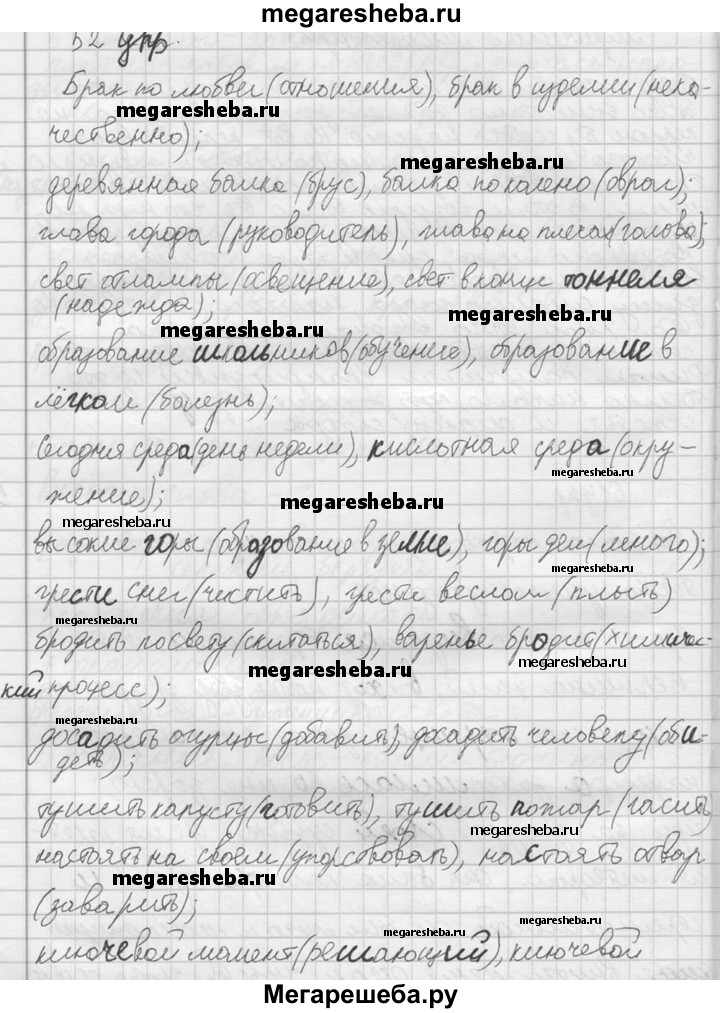 megaresheba.ru
52 упр.
Брак по любви (отношения), брак в изделии (нека-
megaresheba.ru
чественно);
megaresheba.ru
деревянная балка (брус), балка по колено (овраг);
глава города (руководитель), глава на плечах (голова);
свет от лампы (освещение), свет в конце тоннеля
(надежда);
megaresheba.ru
megaresheba.ru
образование школьников (обучение), образование в
лёгком (болезнь);
Сегодня среда (день недели), кислотная среда (окру-
megaresheba.ru
жение);
megaresheba.ru
megaresheba.ru
высокие горы (образование в земле), горы дел (много);
megaresheba.ru
грести снег (чистить), грести веслом (плыть)
megaresheba.ru
бродить по свету (скитаться), варенье бродит (химичес-
megaresheba.ru
megaresheba.ru
кий процесс);
megaresheba.ru
досадить огурцы (добавить), досадить человеку (оби-
деть);
тушить капусту (готовить), тушить пожар (гасить)
megaresheba.ru
настоять на своём (упорствовать), настоять отвар
megaresheba.ru
(заварить);
megaresheba.ru
megaresheba.ru
ключевой момент (решающий), ключевой
Мегарешеба.ру